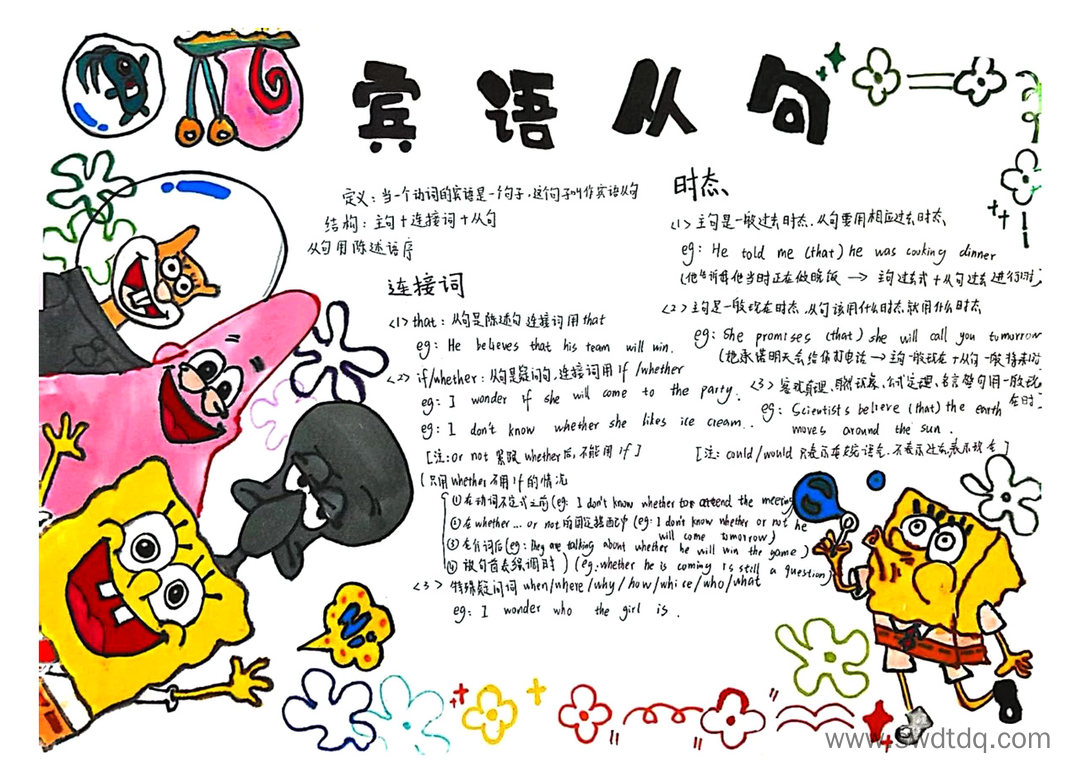 宾语从句
定义：当一个动词的宾语是一个句子，这个句子叫作宾语从句
结构：主句＋连接词＋从句
从句用陈述语序
连接词
<1> that：从句是陈述句 连接词用that
eg：He believes that his team will win.
<2> if/whether：从句是疑问句，连接词用if/whether
eg：I wonder if she will come to the party.
eg：I don't know whether she likes ice cream.
[注：or not 紧跟whether后，不能用if]
(只用whether不用if的情况
①在动词不定式之前(eg：I don't know whether to attend the meeting
②在whether...or not的固定搭配中(eg：I don't know whether or not he
will come tomorrow)
③在介词后(eg：they are talking about whether he will win the game)
④放句首表强调时)(eg：whether he is coming is still a question)
<3> 特殊疑问词 when/where/why/how/whice/who/what
eg：I wonder who the girl is.
时态、
<1> 主句是一般过去时态、从句要用相应过去时态
eg：He told me (that) he was cooking dinner
(他告诉我他当时正在做晚饭 → 主句过去式＋从句过去进行时)
<2> 主句是一般现在时态、从句该用什么时态就用什么时态
eg：She promises (that) she will call you tomorrow
(她承诺明天会给你打电话 → 主句一般现在＋从句一般将来时
<3> 客观真理、自然现象、公式定理、名言警句用一般现
在时
eg：Scientists believe (that) the earth
moves around the sun.
[注：could/would 只表示委婉语气，不表示过去
www.swdtdq.com